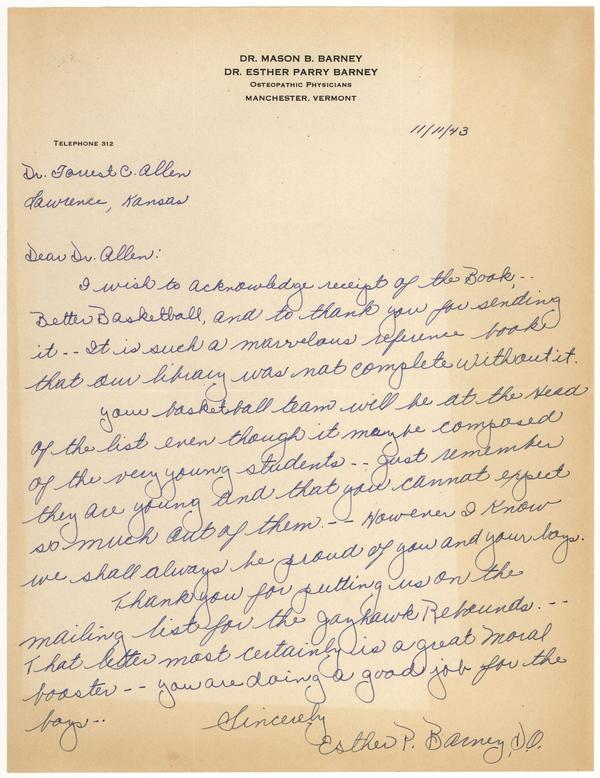 DR. MASON B. BARNEY
DR. ESTHER PARRY BARNEY
OSTEOPATHIC PHYSICIANS
MANCHESTER, VERMONT
TELEPHONE 312
11/11/43
Dr. Forrest C. Allen
Lawrence, Kansas
Dear Dr. Allen:
I wish to acknowledge receipt of the Book, --
Better Basketball, and to thank you for sending
it -- It is such a marvelous reference book
that our library was not complete without it.
Your basketball team will be at the Head
of the list even though it maybe composed
of the very young students -- Just remember
they are young and that you cannot expect
so much out of them. -- However I know
we shall always be proud of you and your boys.
Thank you for putting us on the
mailing list for the Jayhawk Rebounds. --
That letter most certainly is a great Moral
booster -- you are doing a good job for the
boys --
Sincerely
Esther P. Barney, D.O.